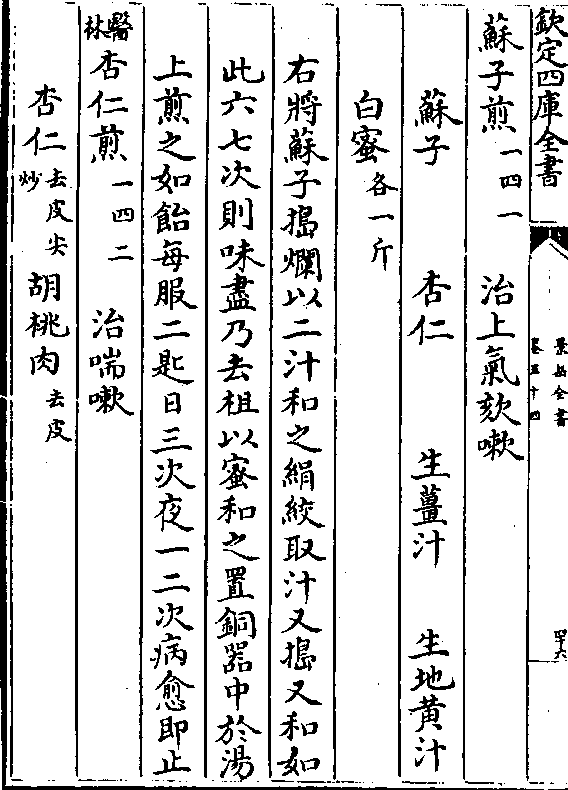 欽定四庫全書
景岳全書
卷五十四
四十六
蘇子煎一四一 治上氣欬嗽
蘇子 杏仁 生薑汁 生地黃汁
白蜜各一斤
右將蘇子搗爛以二汁和之絹絞取汁又搗又和如
此六七次則味盡乃去柤以蜜和之置銅器中於湯
上煎之如飴每服二匙日三次夜一二次病愈即止
醫林杏仁煎一四二 治喘嗽
杏仁去皮尖炒 胡桃肉去皮